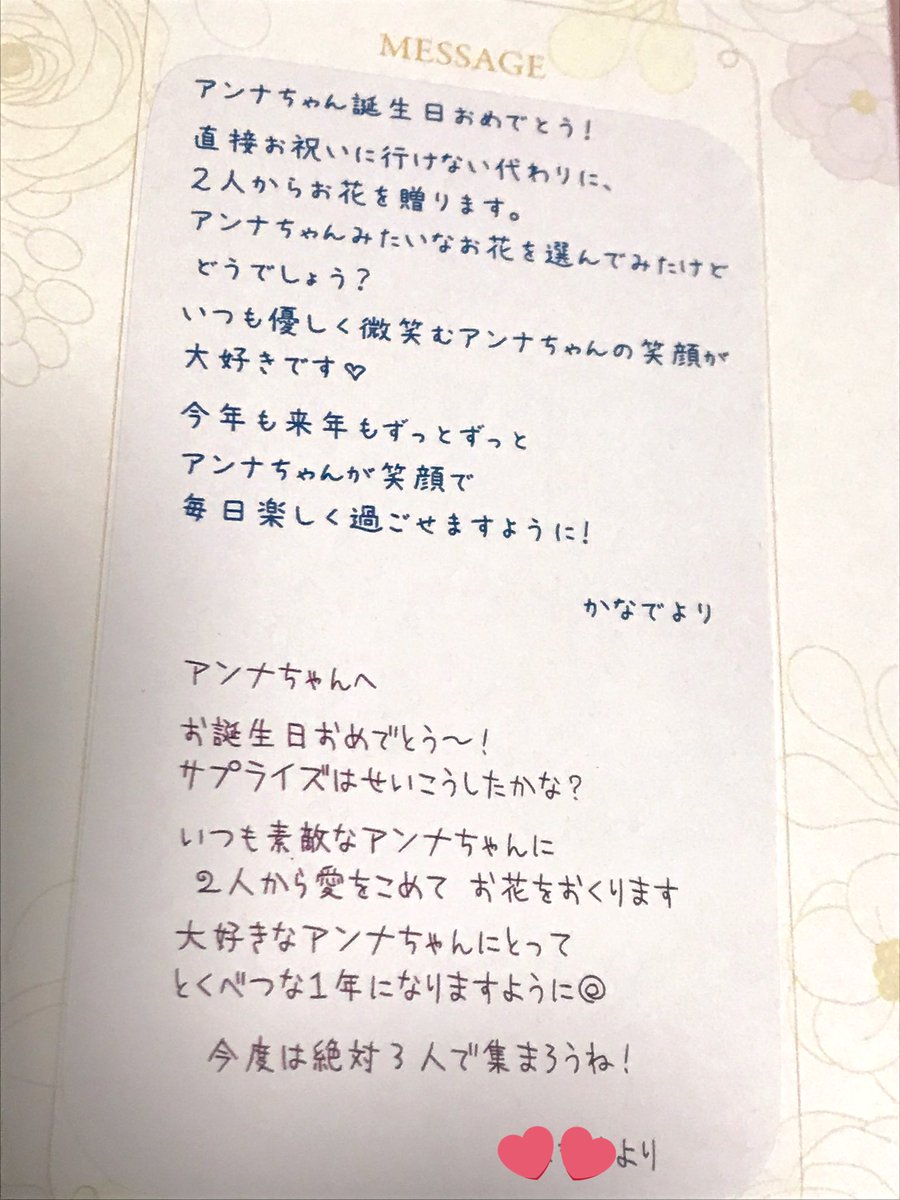 MESSAGE
アンナちゃん誕生日おめでとう!
直接お祝いに行けない代わりに、
2人からお花を贈ります。
アンナちゃんみたいなお花を選んでみたけど
どうでしょう?
いつも優しく微笑むアンナちゃんの笑顔が
大好きです♡
今年も来年もずっとずっと
アンナちゃんが笑顔で
毎日楽しく過ごせますように!
かなでより
アンナちゃんへ
お誕生日おめでとう〜!
サプライズはせいこうしたかな?
いつも素敵なアンナちゃんに
2人から愛をこめて お花をおくります
大好きなアンナちゃんにとって
とくべつな1年になりますように◎
今度は絶対3人で集まろうね!
より